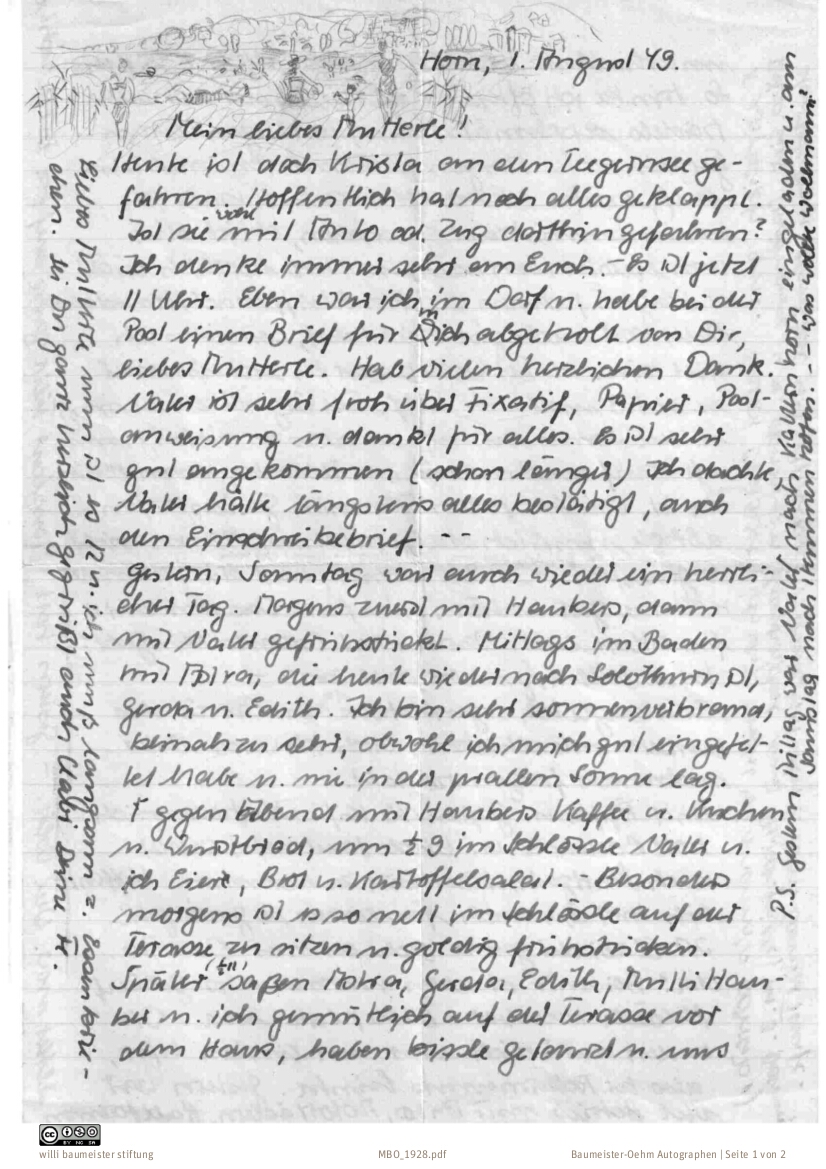 Horn, 1. August 49.
Mein liebes Mutterle!
Heute ist doch Krista an den Tegernsee ge-
fahren. Hoffentlich hat noch alles geklappt.
Ist sie wohl mit Auto od. Zug dorthin gefahren?
Ich denke immer sehr an Euch. – Es ist jetzt
11 Uhr. Eben war ich im Dorf u. habe bei der
Post einen Brief für mich abgeholt von Dir,
liebes Mutterle. Hab vielen herzlichen Dank.
Vater ist sehr froh über Fixatif, Papier, Post-
anweisung u. dankt für alles. Es ist sehr
gut angekommen (schon länger) Ich dachte,
Vater hätte längstens alles bestätigt, auch
den Einschreibebrief. --
gestern, Sonntag war auch wieder ein herrli-
cher Tag. Morgens zuerst mit Haubers, dann
mit Vater gefrühstückt. Mittags im Baden
mit Moira, die heute wieder nach Solothurn ist,
Gerda u. Edith. Ich bin sehr sonnenverbrannt,
beinah zu sehr, obwohl ich mich gut eingefet-
tet habe u. nie in der prallen Sonne lag.
gegen Abend mit Haubers Kaffee u. Kuchen
u. Wurstbrod, um ½ 9 im Schlössle Vater u.
ich Eier, Brot u. Kartoffelsalat. – Besonders
morgens ist es so nett im Schlössle auf der
Terasse zu sitzen u. goldig frühstücken.
Später (½11) saßen Moira, Gerda, Edith, Mutti Hau-
ber u. ich gemütlich auf der Terasse vor
dem Haus, haben bissle getanzt u. uns
Liebes Mutterle nun ist es 12 u. ich muß langsam z. Essen krie-
chen. Sei Du ganz herzlich gegrüßt auch Deine
P.S. Gestern war Vater nach Kattenhorn eingeladen u. am
Samstag nach Hemmenhofen. – was
willi baumeister stiftung
MBO_1928.pdf
Baumeister-Oehm Autographen | Seite 1 von 2